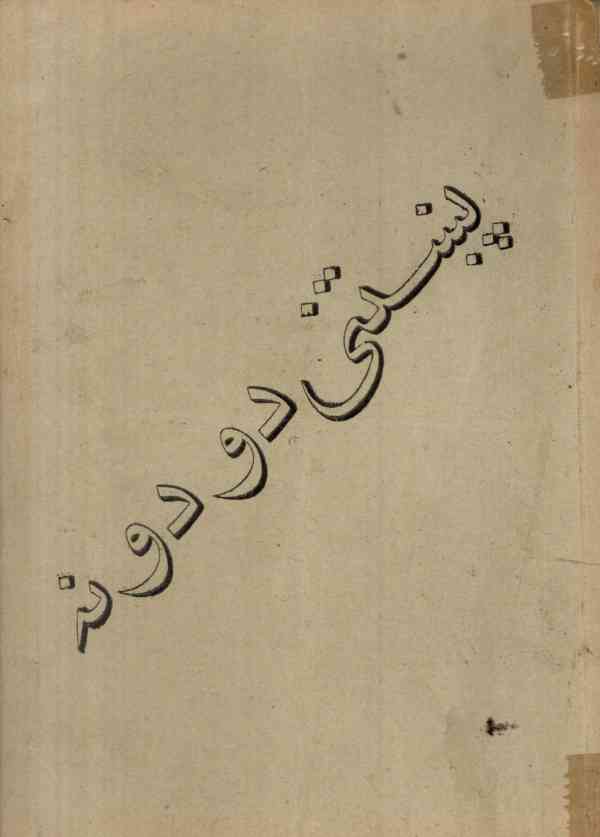 پښتنی دودونه